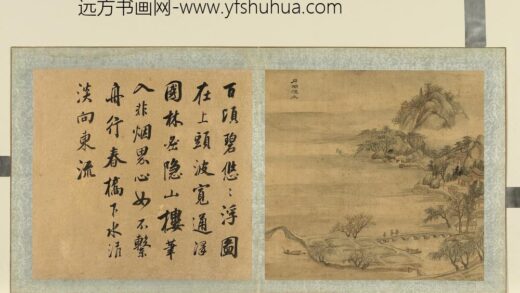 远方书画网-www.yfshuhua.com
百頃碧悠悠浮圖
在上頭波寬通澤
國林密隐山樓筆
入非烟思心如不繫
舟行春橋下水活
淡向東流